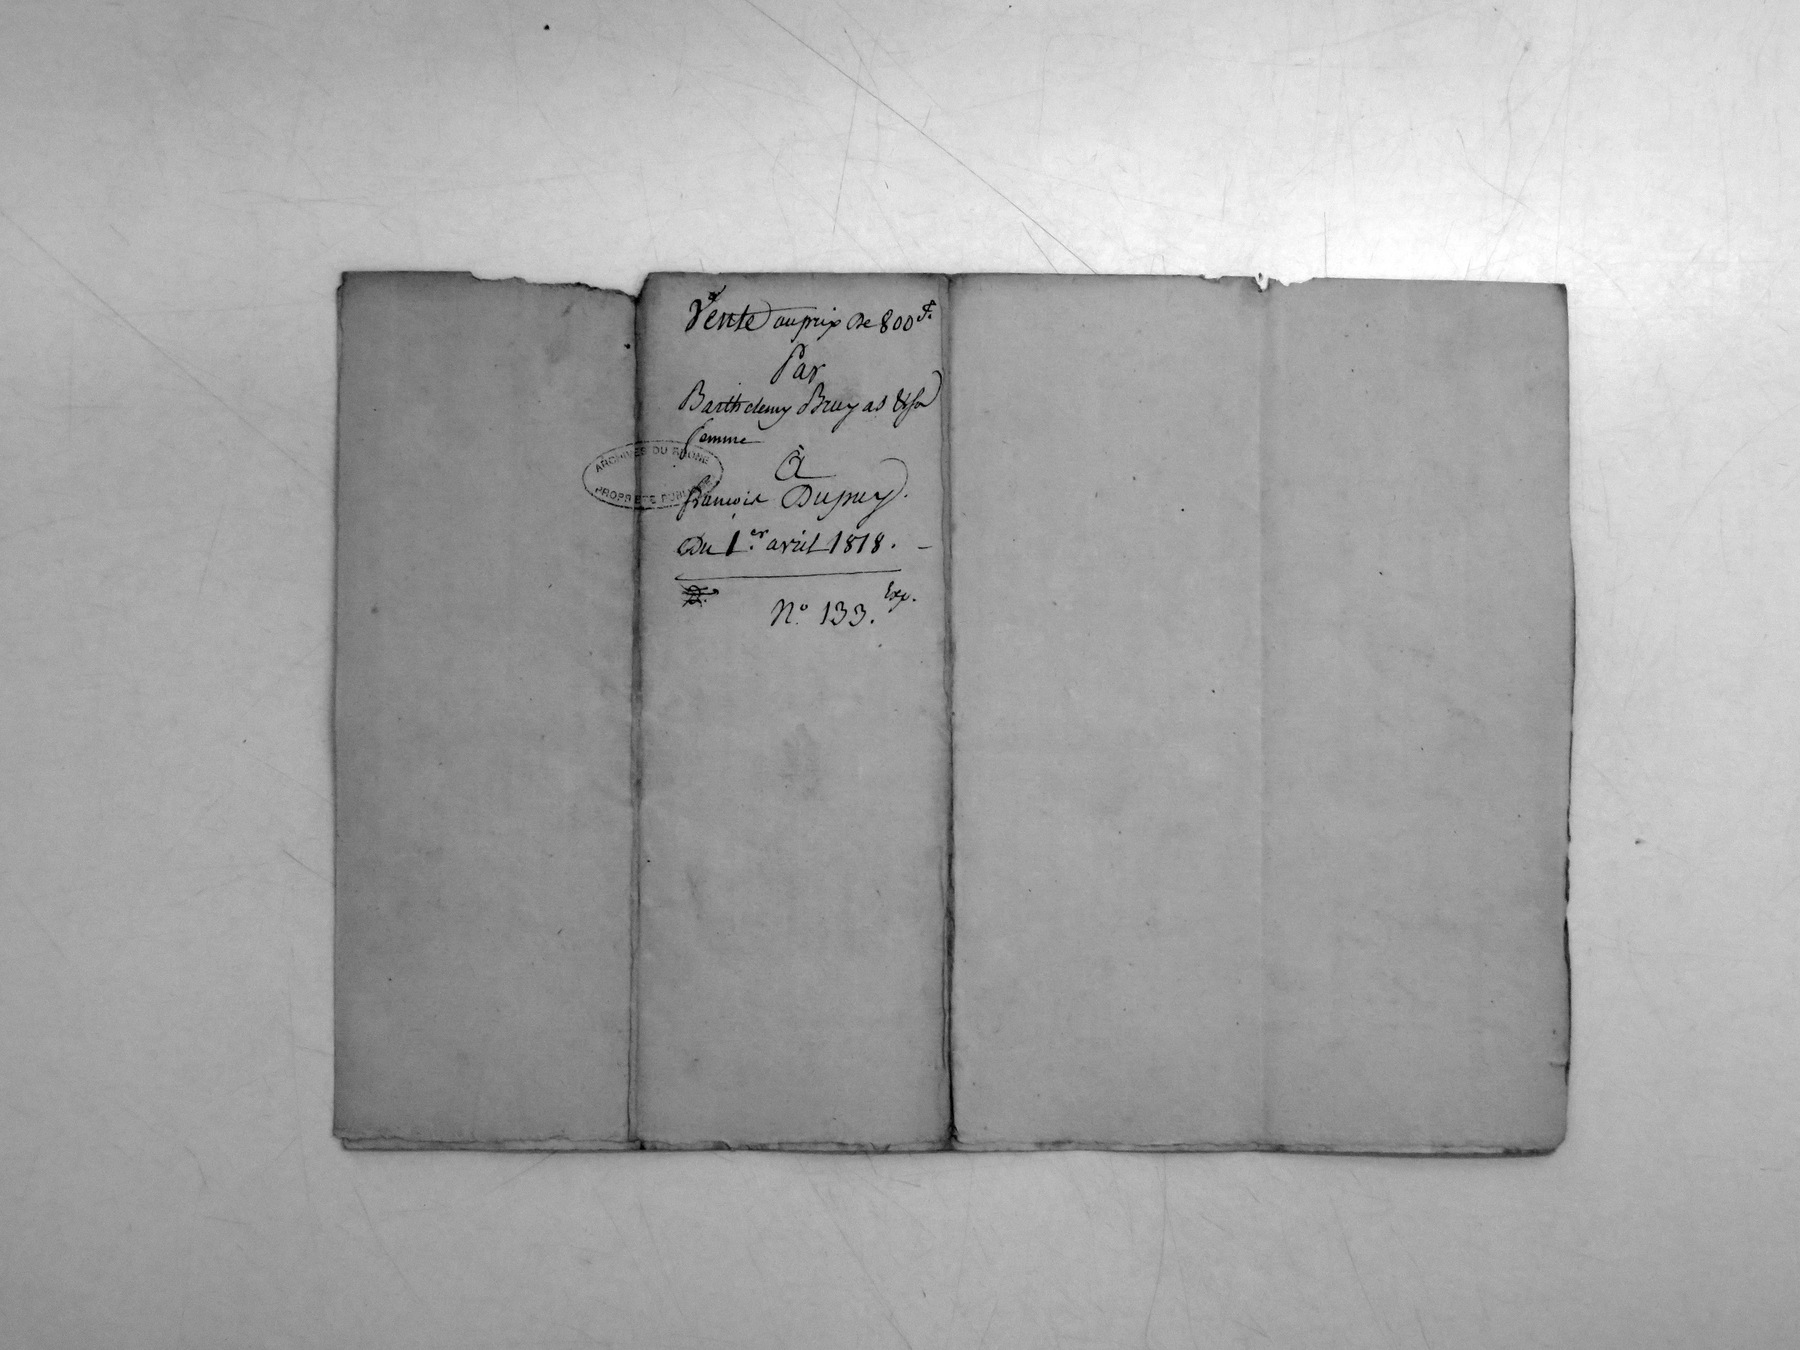 Vente au prix de 800 f.
Par
Barthelemy Bruyas & sa
femme
à
françois Dupuy.
Du 1.er avril 1818. –
ARCHIVES DU RHONE
PROPRIETE PUBLIQUE
N.o 133. Exp.